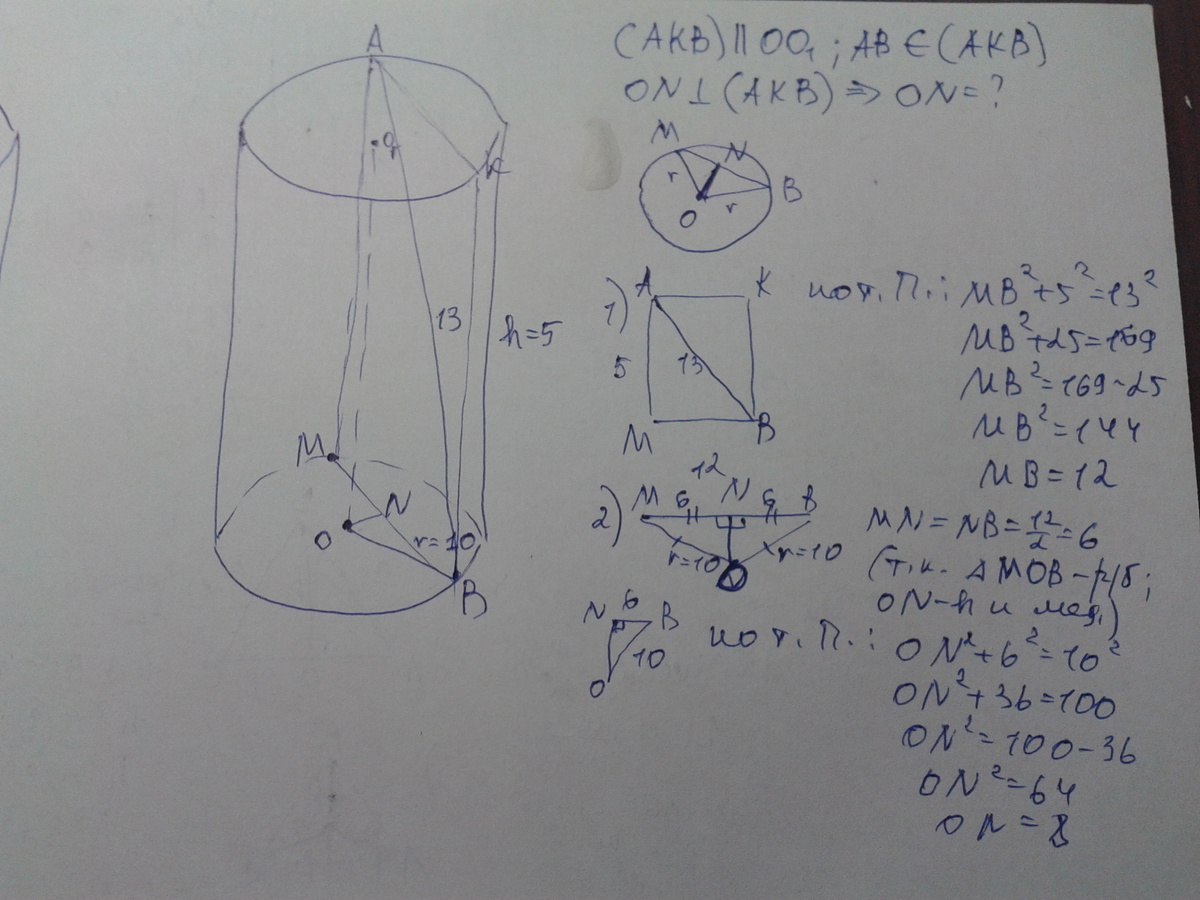 A
O₁
K
13
h=5
M
N
O
r=10
B
(AKB) || OO₁ ; AB ∈ (AKB)
ON ⊥ (AKB) => ON = ?
M
N
r
B
O
r
1) A K
5 13
M B
по т. П.: MB²+5²=13²
MB²+25=169
MB²=169-25
MB²=144
MB=12
12
2) M 6 N 6 B
r=10 r=10
O
MN=NB=12/2=6
(т.к. △MOB-р/б;
ON-h и мед.)
N 6 B
10
O
по т. П.: ON²+6²=10²
ON²+36=100
ON²=100-36
ON²=64
ON=8